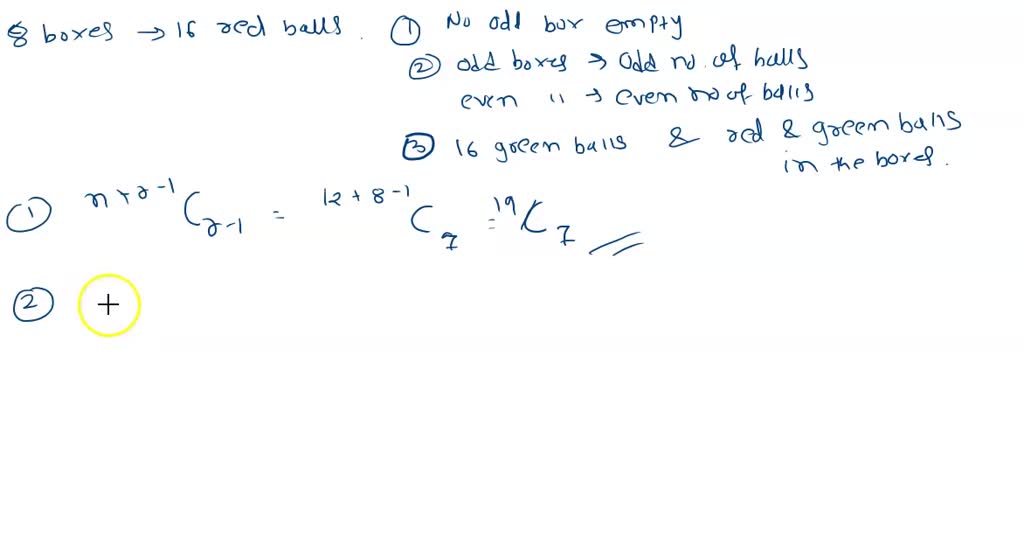 8 boxes → 16 red balls. ① No odd box empty
② odd boxes → Odd no. of balls
even " → even no of balls
③ 16 green balls & red & green balls
in the boxes.
① n+r-1 C r-1 = 12+8-1 C 7 = 19 C 7
②